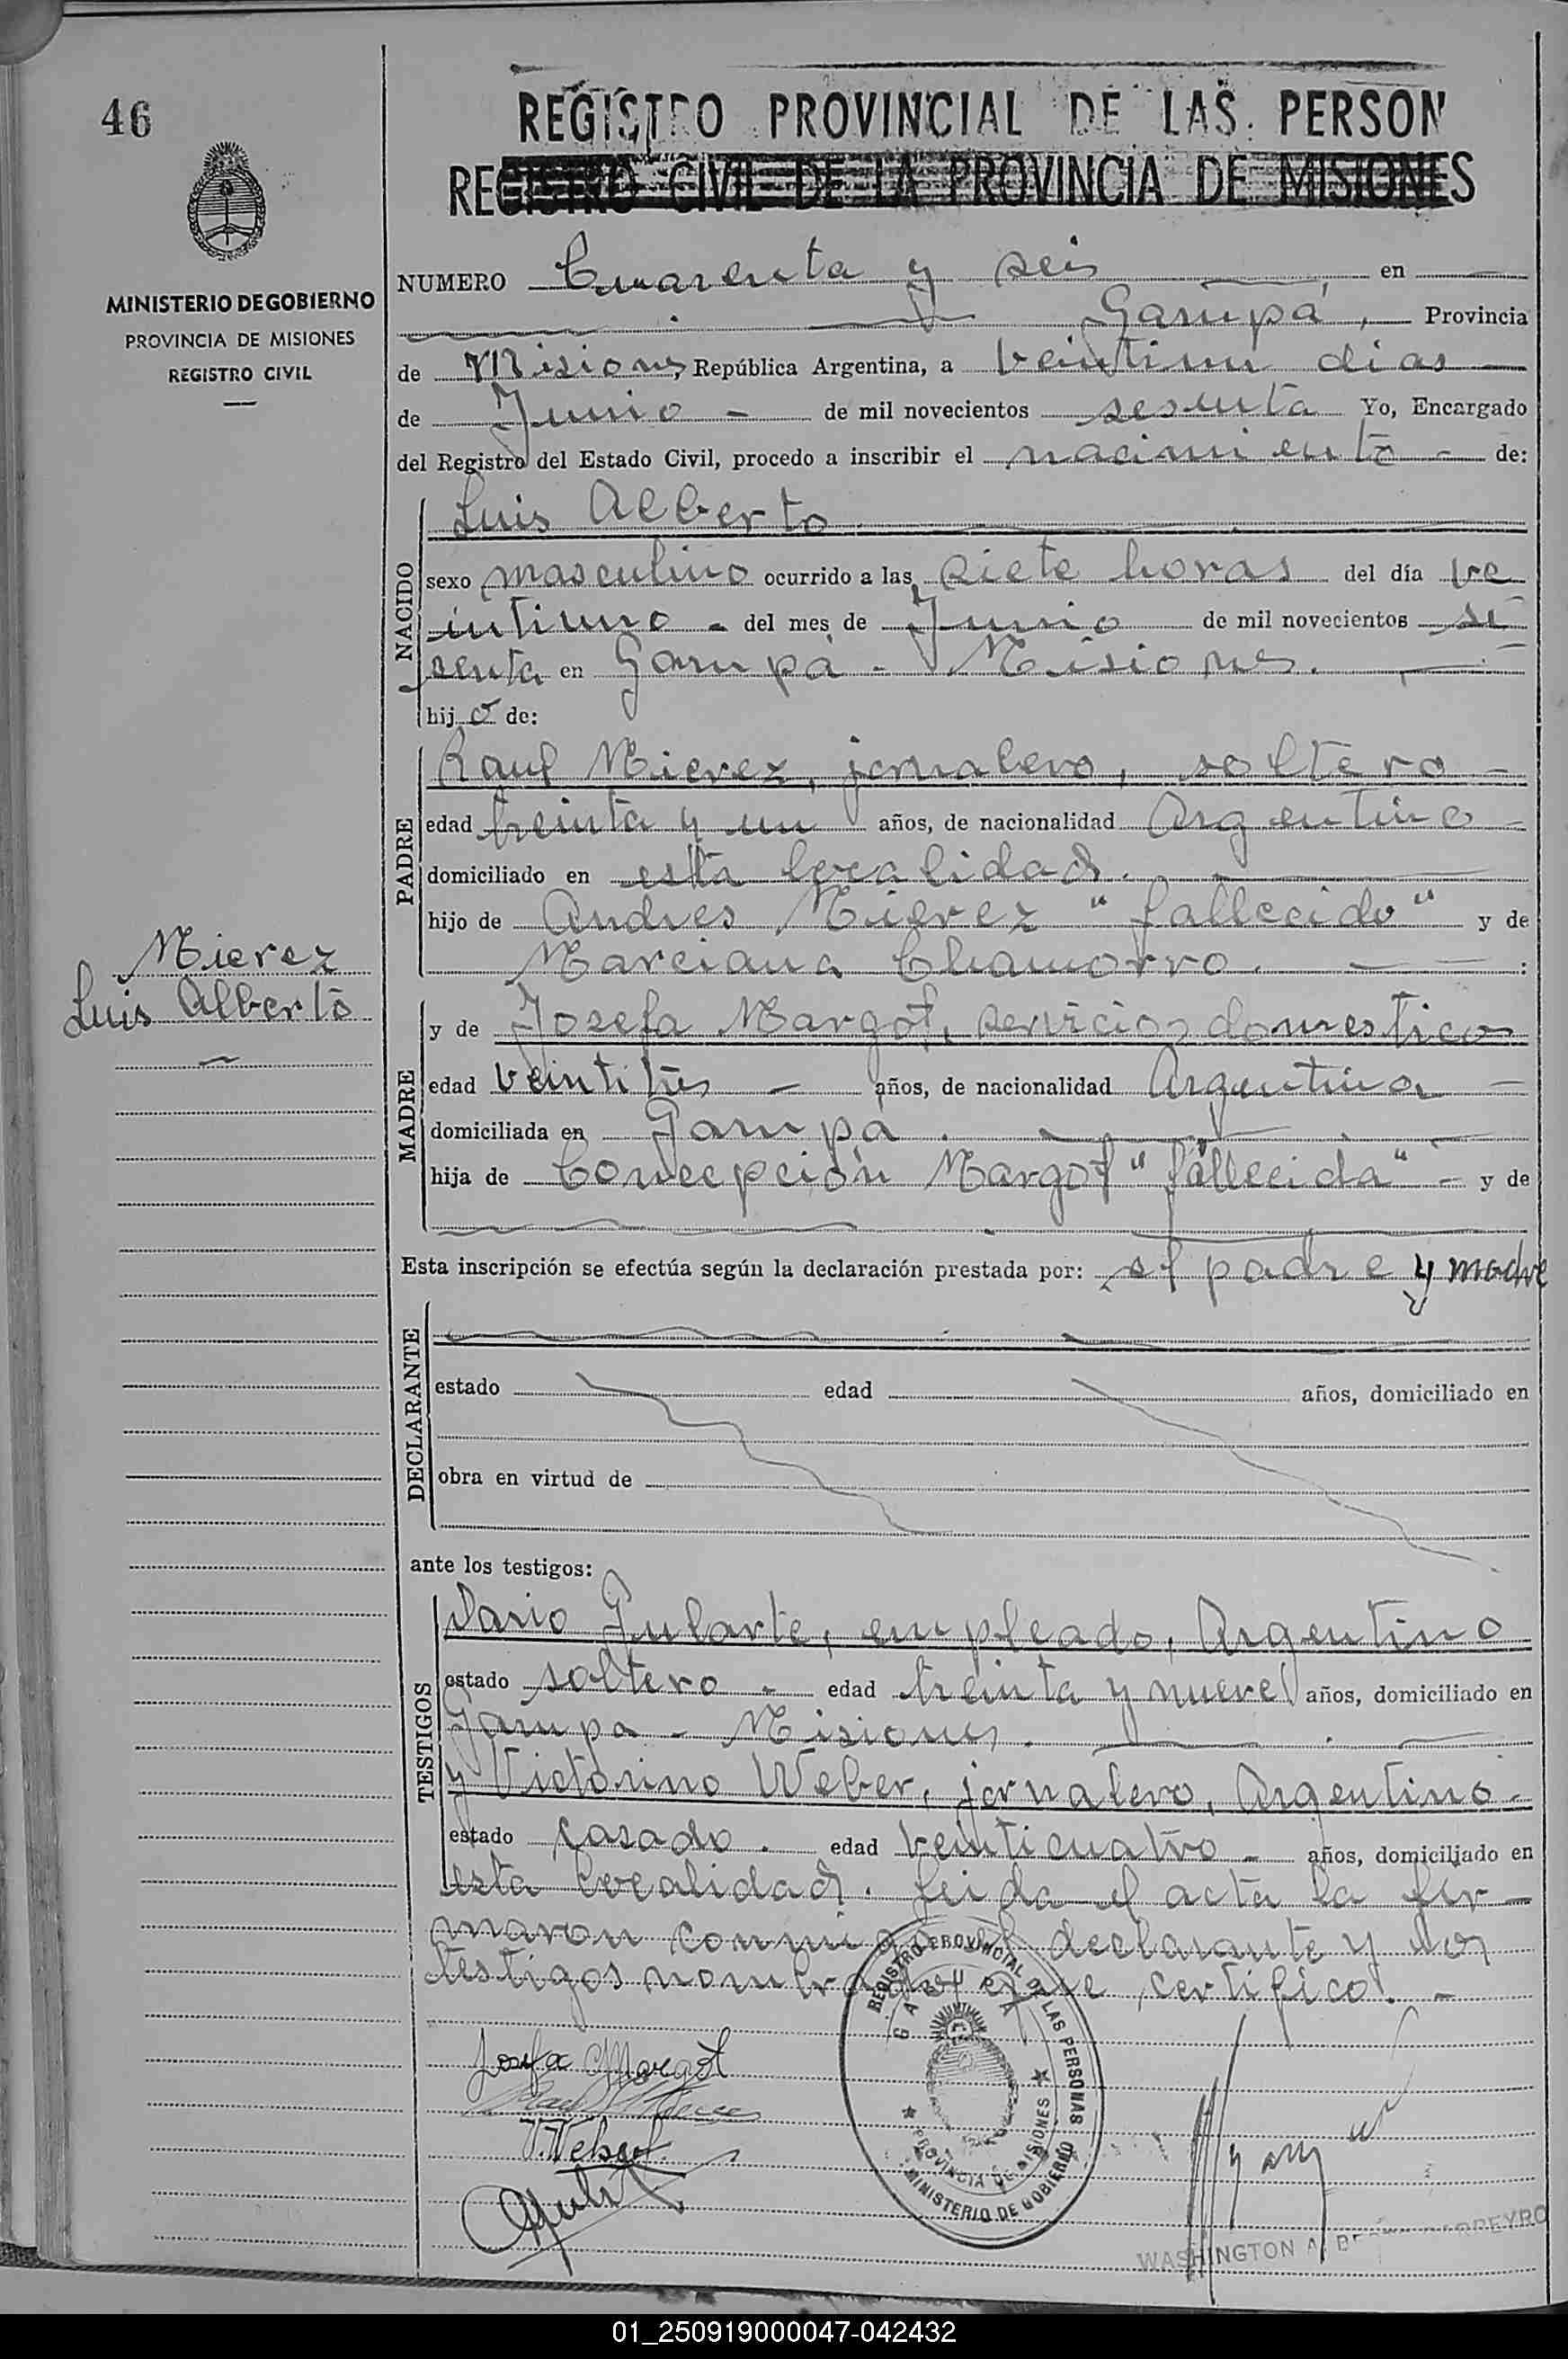 46
REGISTRO PROVINCIAL DE LAS PERSON
REGISTRO CIVIL DE LA PROVINCIA DE MISIONES
MINISTERIO DE GOBIERNO
PROVINCIA DE MISIONES
REGISTRO CIVIL
NUMERO Cuarenta y seis en
Garupá, Provincia
de Misiones, República Argentina, a veintiun dias
de Junio - de mil novecientos sesenta Yo, Encargado
del Registro del Estado Civil, procedo a inscribir el nacimiento - de:
NACIDO
Luis Alberto
sexo masculino ocurrido a las siete horas del día ve
intiuno - del mes de Junio de mil novecientos se
senta en Garupá - Misiones.
hijo de:
PADRE
Raul Mierez, jornalero, soltero -
edad treinta y un años, de nacionalidad Argentino -
domiciliado en esta localidad.
hijo de Andres Mierez "fallecido" y de
Marciana Chamorro. :
Mierez
Luis Alberto
MADRE
y de Josefa Margot, servicios domesticos
edad veintitres - años, de nacionalidad Argentina -
domiciliada en Garupá.
hija de Concepción Margot "fallecida" - y de
Esta inscripción se efectúa según la declaración prestada por: el padre y madre
DECLARANTE
estado edad años, domiciliado en
obra en virtud de
ante los testigos:
TESTIGOS
Dario Gularte, empleado, Argentino
estado soltero - edad treinta y nueve años, domiciliado en
Garupa - Misiones.
y Victorino Weber, jornalero, Argentino -
estado casado. edad veinticuatro - años, domiciliado en
esta localidad. Leida el acta la fir-
maron conmigo el declarante y los
testigos nombrados que certifico. -
REGISTRO PROVINCIAL DE LAS PERSONAS
GARUPA
PROVINCIA DE MISIONES
MINISTERIO DE GOBIERNO
Josefa Margot
V. Weber
WASHINGTON A.
01_250919000047-042432